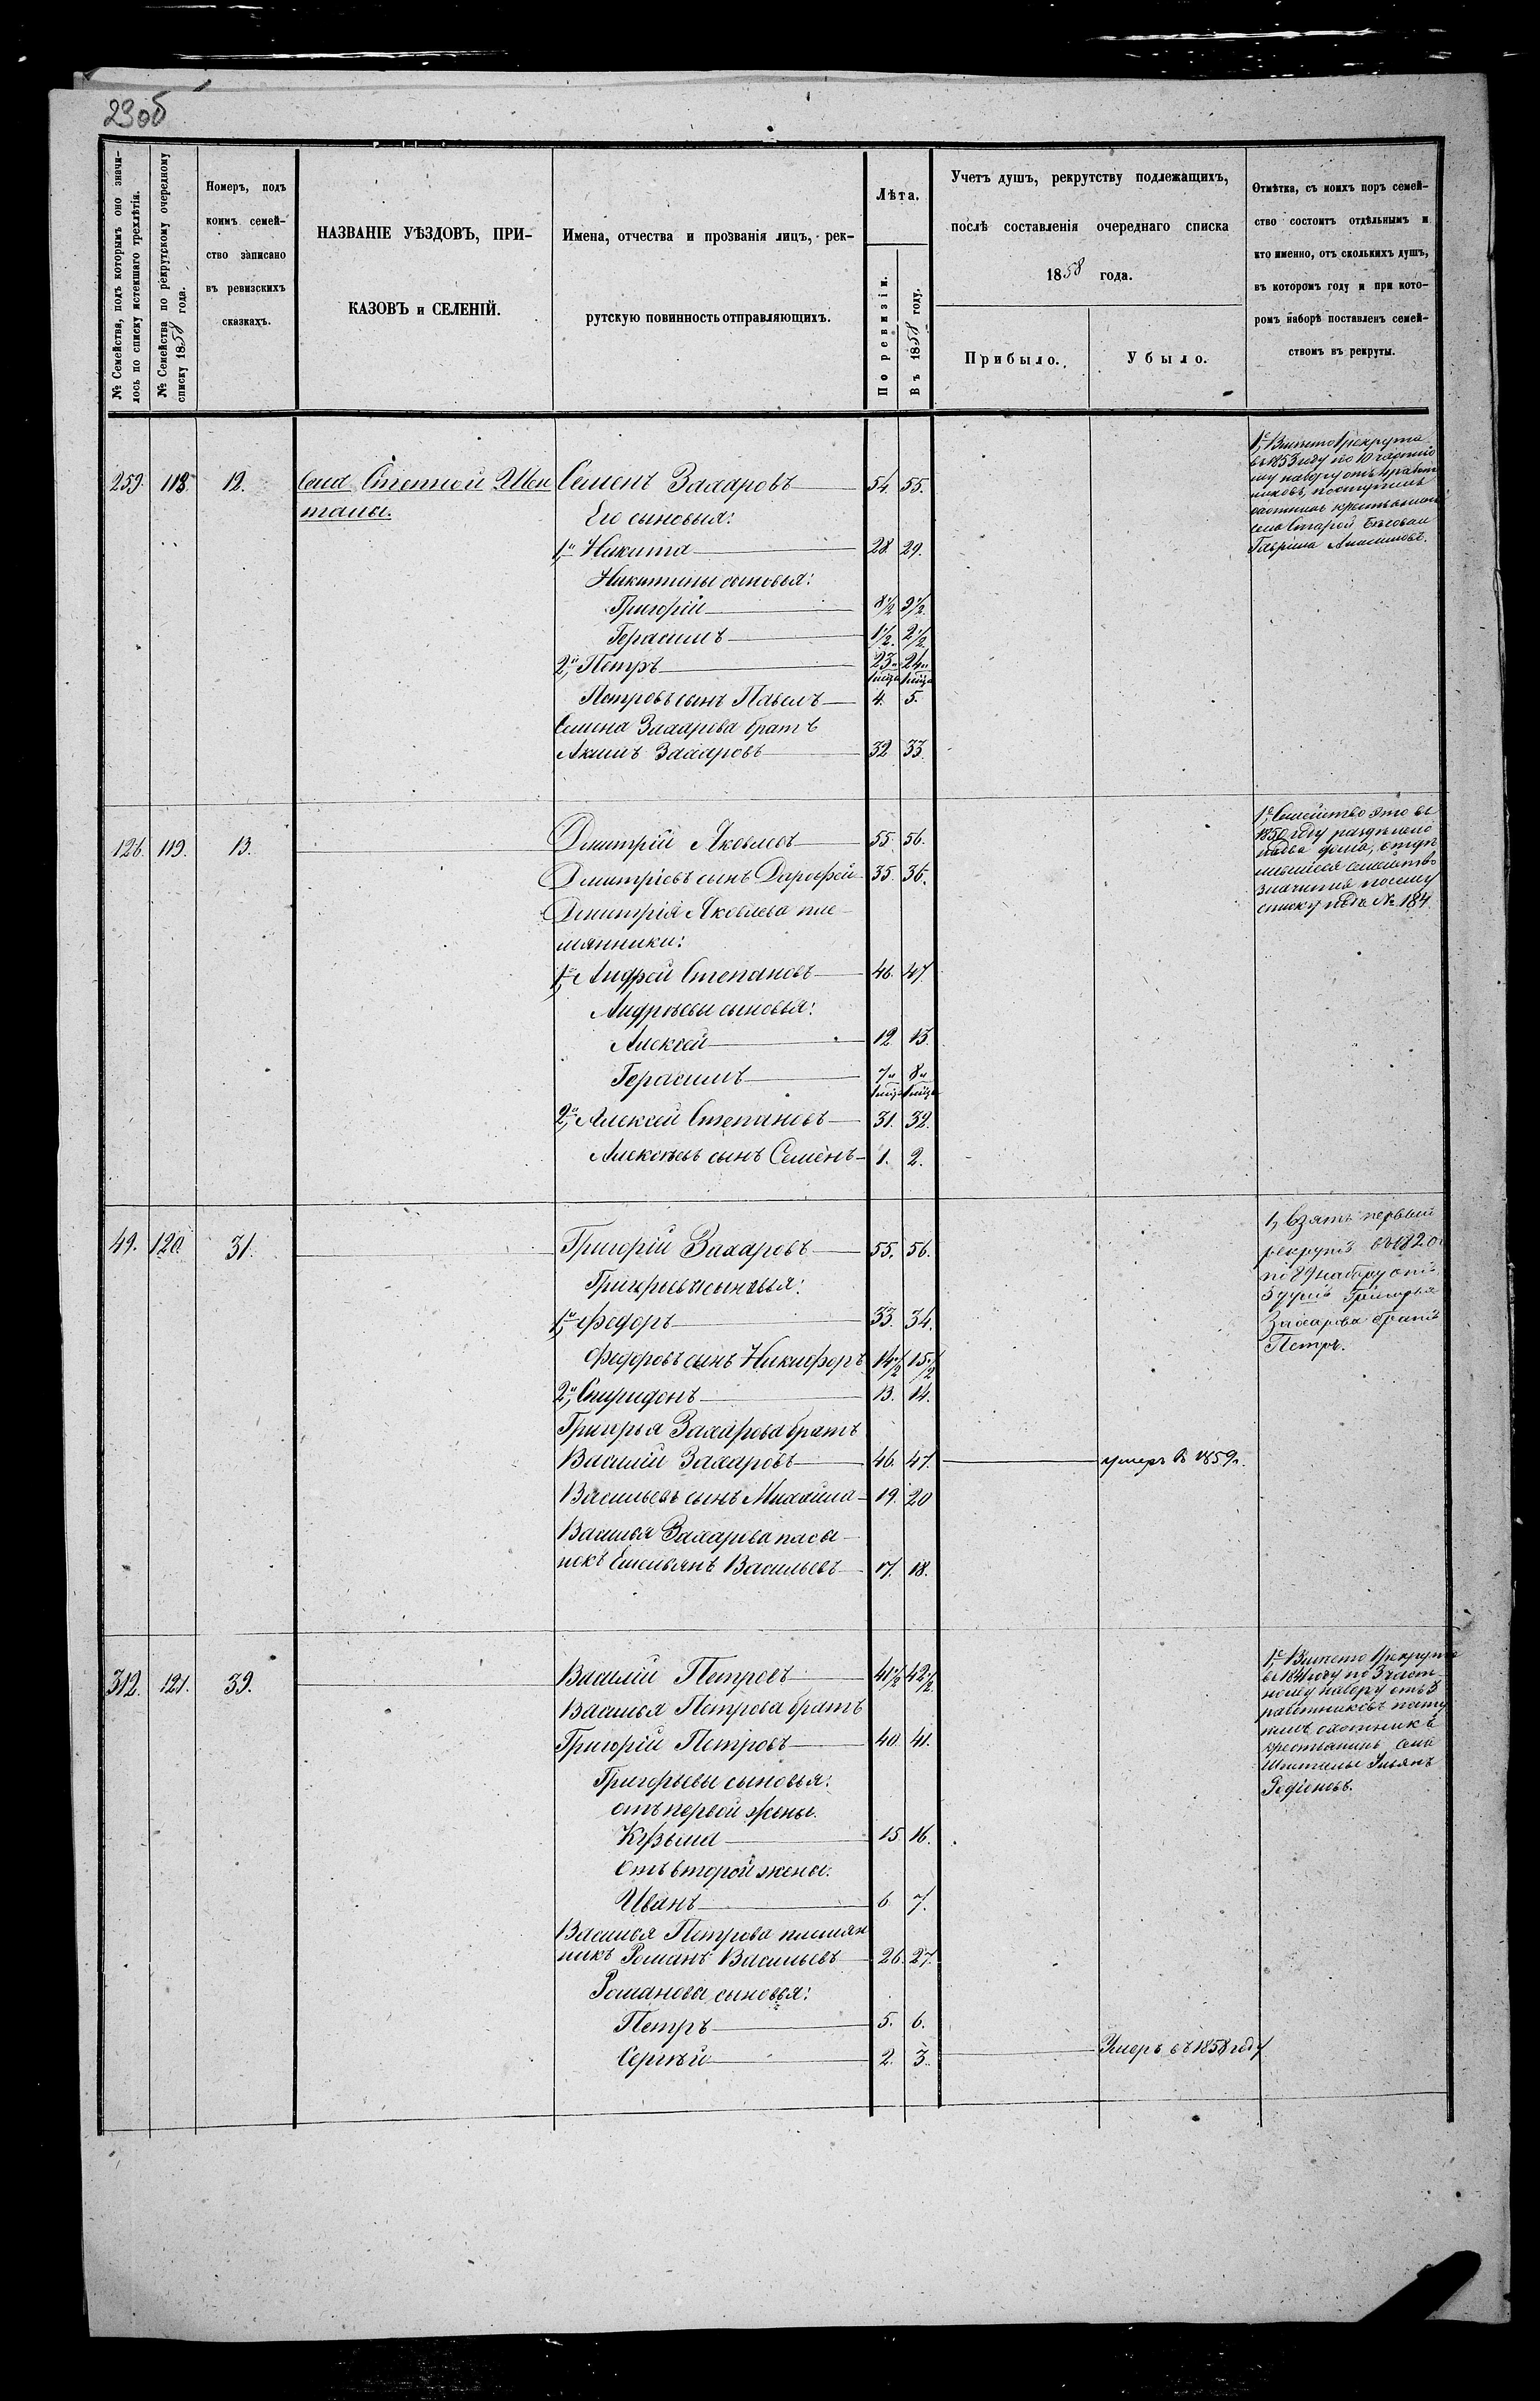 29об
№ Семейства, подъ которымъ оно значи-
лось по списку истекшаго трехлѣтія.
№ Семейства по рекрутскому очередному
списку 1858 года.
Номеръ, подъ
коимъ семей-
ство записано
въ ревизскихъ
сказкахъ.
НАЗВАНІЕ УѢЗДОВЪ, ПРИ-
КАЗОВЪ и СЕЛЕНІЙ.
Имена, отчества и прозванія лицъ, рек-
рутскую повинность отправляющихъ.
Лѣта.
По ревизіи.
Въ 1858 году.
Учетъ душъ, рекрутству подлежащихъ,
послѣ составленія очереднаго списка
1858 года.
Прибыло.
Убыло.
Отмѣтка, съ коихъ поръ семей-
ство состоитъ отдѣльнымъ и
кто именно, отъ сколькихъ душъ,
въ которомъ году и при кото-
ромъ наборѣ поставленъ семей-
ствомъ въ рекруты.
259. 118. 12. Села Степной Шен Семенъ Захаровъ 54. 55.
талы.
Его сыновья:
1й, Никита 28 29.
Никитины сыновья:
Григорій 8½ 9½.
Герасимъ 1½. 2½.
2й, Петръ 23 24
Петровъ сынъ Павелъ 4. 5.
Семена Захарова братъ
Акимъ Захаровъ 32 33.
1е, Вмѣсто 1 рекрута
въ 1853 году по 10 частно
му набору отъ
поступилъ
охотникъ крестьянинъ
села Старой
Гаврила Анисимовъ.
126. 119. 13. Дмитрій Яковлевъ 55. 56.
Дмитріевъ сынъ Дорофей 35. 36.
Дмитрія Яковлева пле-
мянники:
1й, Андрей Степановъ 46. 47
Андреевы сыновья:
Алексѣй 12. 13.
Герасимъ 7 8
2й, Алексѣй Степановъ 31. 32.
Алексѣевъ сынъ Семёнъ 1. 2.
1е, Семейство это въ
1850 году раздѣлено
на два дома, отдѣ
лившееся семейство
значится по сему
списку подъ № 184.
49. 120. 31. Григорій Захаровъ 55. 56.
Григорьевы сыновья:
1й, Федоръ 33. 34.
Федоровъ сынъ Никифоръ 14½ 15½
2й, Спиридонъ 13. 14.
Григорья Захарова братъ
Василій Захаровъ 46. 47. умеръ въ 1859г.
Васильевъ сынъ Михайла 19. 20
Василья Захарова пасы-
нокъ Емельянъ Васильевъ 17. 18.
1, взятъ первый
рекрутъ въ 1820
по 89 набору отъ
5 душъ Григорья
Захарова братъ
Петръ.
312. 121. 39. Василій Петровъ 41½ 42½
Василья Петрова братъ
Григорій Петровъ 40. 41.
Григорьевы сыновья:
отъ первой жены.
Кузьма 15 16.
Отъ второй жены:
Иванъ 6 7.
Василья Петрова племян
никъ Романъ Васильевъ 26. 27.
Романовы сыновья:
Петръ 5. 6.
Сергѣй 2. 3. Умеръ въ 1858 году
1е Вмѣсто 1 рекрута
въ 1841 году по 3 част-
ному набору отъ 3
работниковъ посту
пилъ охотникъ
крестьянинъ села
Ульянъ
Родіоновъ.